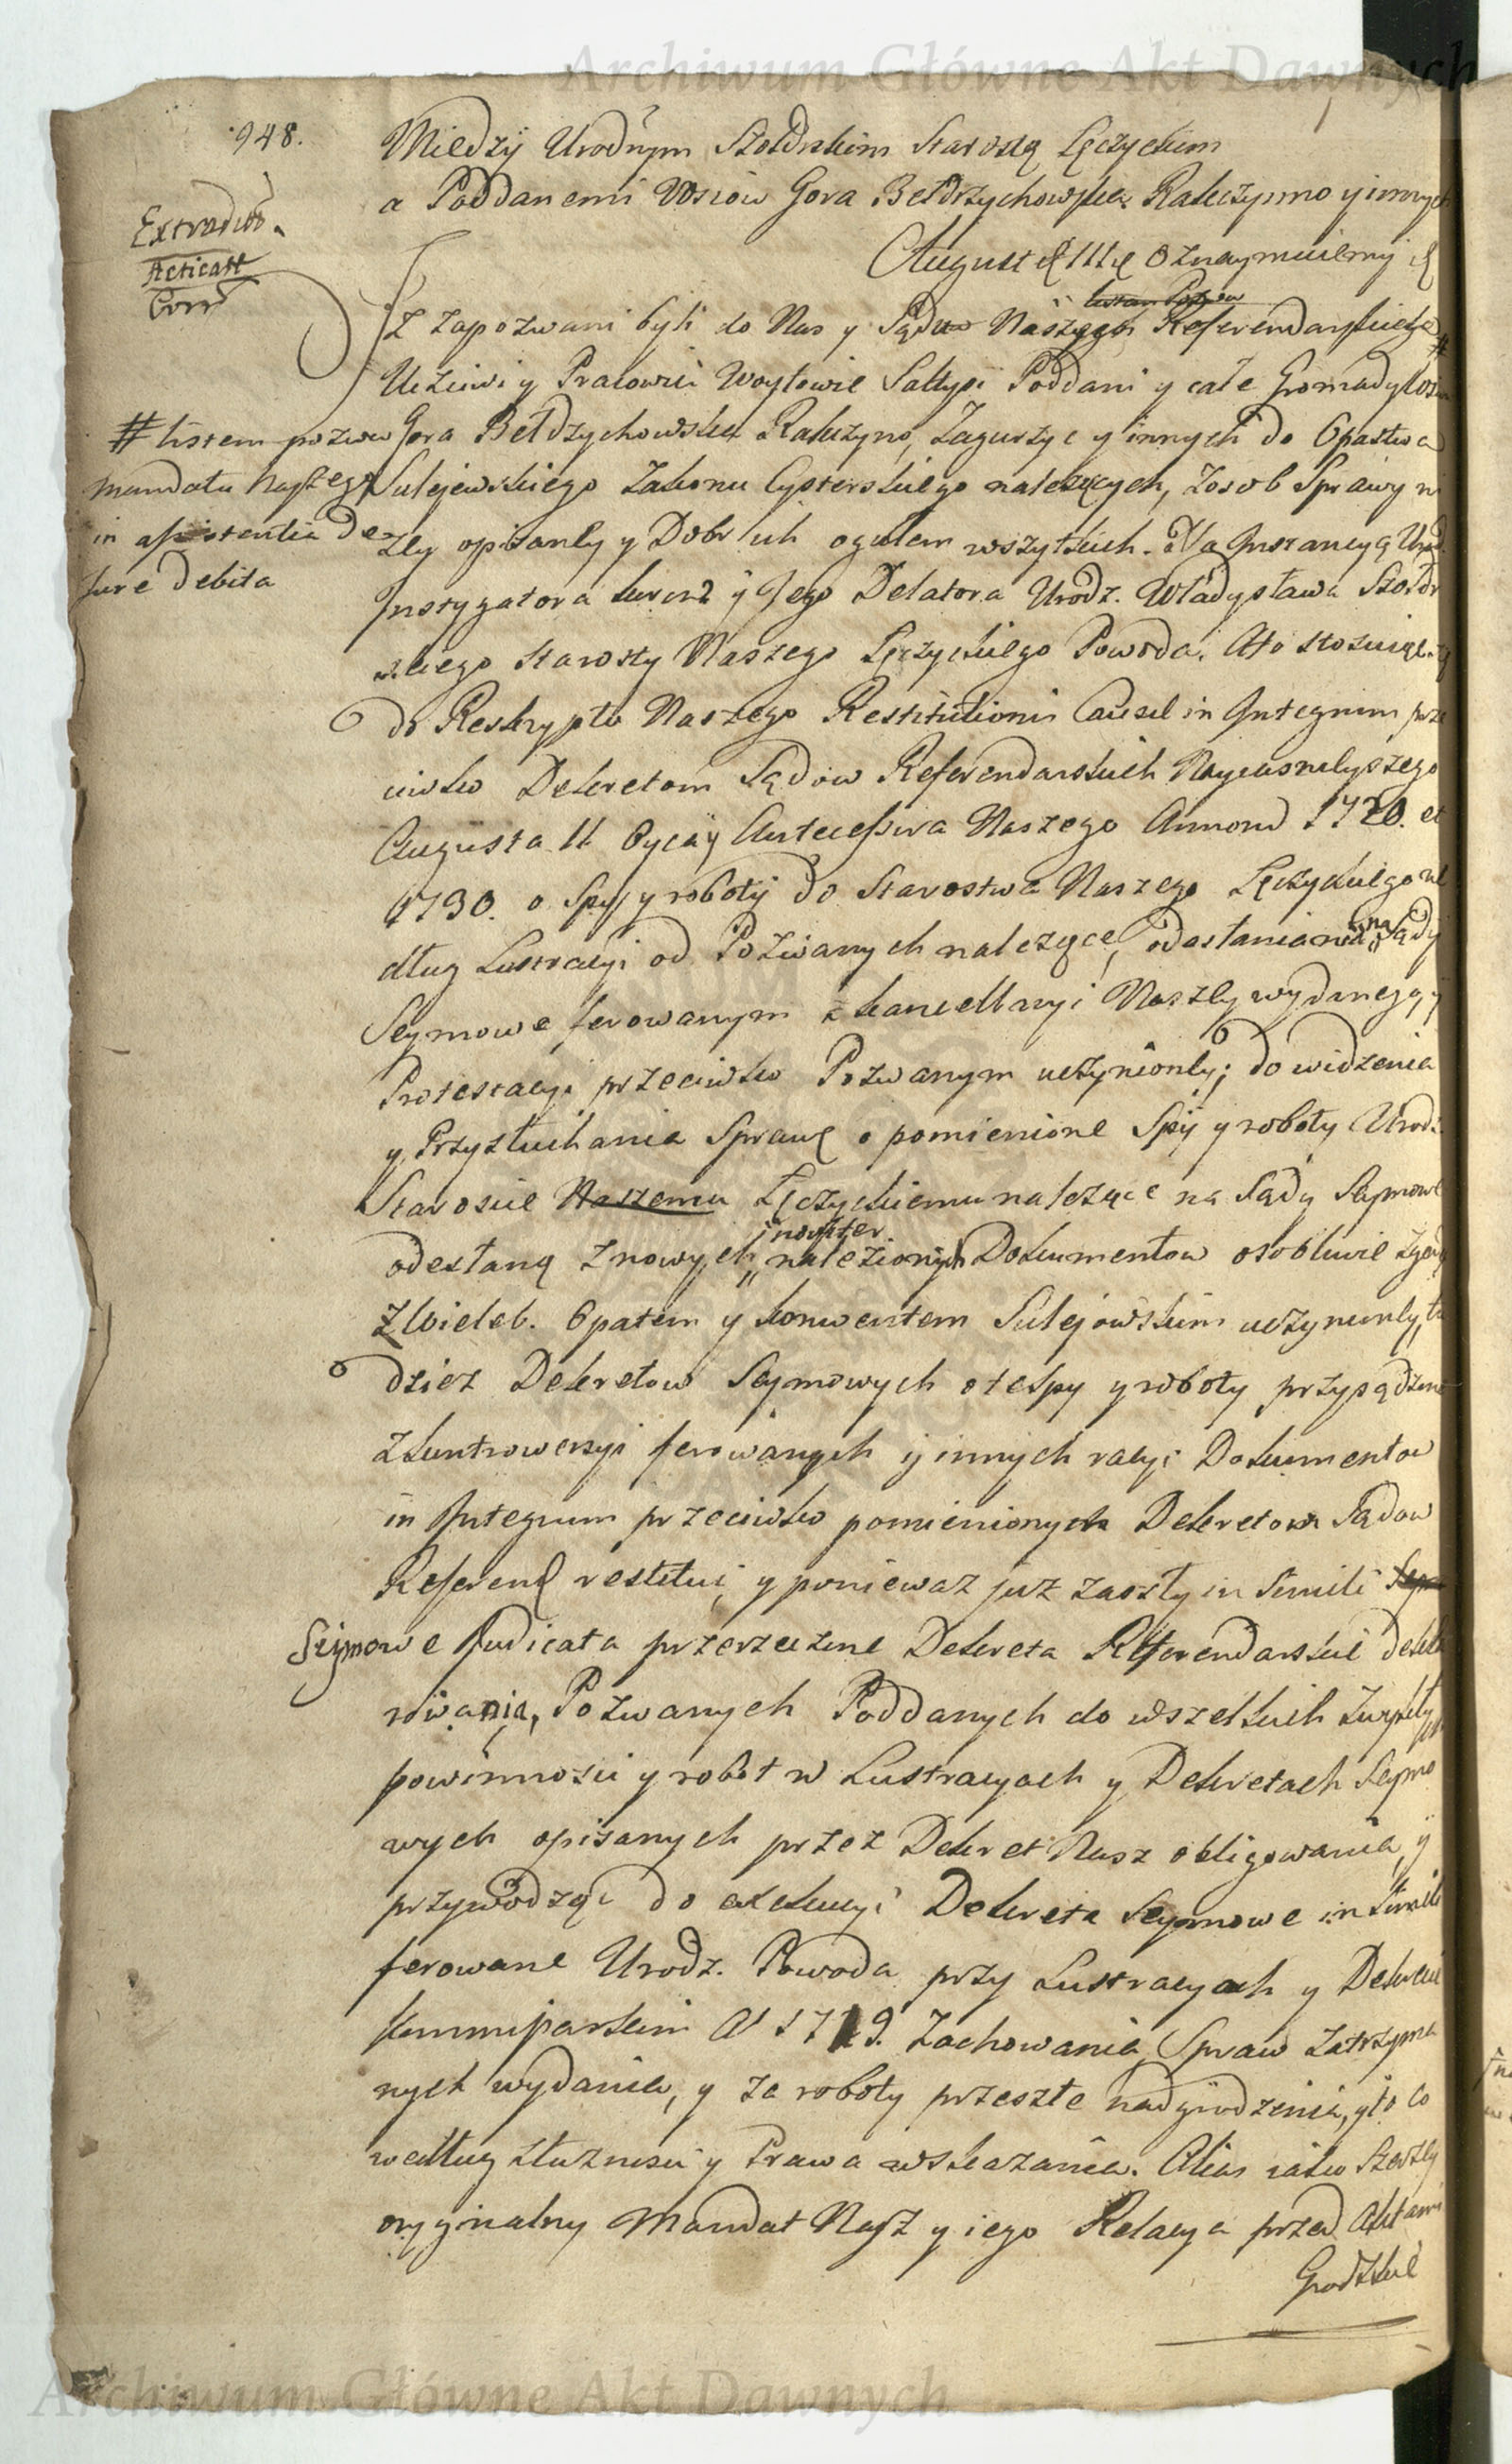 Archiwum Główne Akt Dawnych
948.
Między Urodnym Szołdrskim Starostą Łęczyckim
a Poddanemi Wsiów Gora Bełdrzychowska Kałuzyno y innych
Extradit.
Acticatt
Corr
August III Oznaymuiemy
Iz zapozwani byli do Nas y Sądu Naszego Referendarskiego #
Uczciwi y Pracowici Woytowie Sałtysi Poddani y całe Gromady Wsiow
Gora Bełdzychowska Kałuzyno, Zagurzyc y innych do Opactwa
# listem pozwu
mandatu naszego
in assistentia de
jure debita
Sulejewskiego Zakonu Cysterskiego należących, z osob Sprawy ni
zey opisaney y Dobr ich ogułem wszytkich. Na Instancyą Urod.
Instygatora Koron y Jego Delatora Urodz. Władysława Szołdr
skiego Starosty Naszego Łęczyckiego Powoda. A to stosuiąc się
do Reskryptu Naszego Restitutionis Causae in Integrum prze
ciwko Dekretom Sądow Referendarskich Nayiasnieyszego
Augusta II Oyca y Antecessora Naszego Annorum 1720. et
1730. o Spy y roboty do Starostwa Naszego Łęczyckiego we
dług Lustracyi od Pozwanych należące, odesłania na Sądy
Seymowe ferowanym z kancellaryi Naszey wydanego, y
Protestacyi przeciwko Pozwanym uczynioney; do widzenia
y Przysłuchania Sprawę o pomienione Spy y roboty Urodz.
Staroscie Naszemu Łęczyckiemu należące na Sądy Seymowe
odesłaną z nowych noviter należionych Dokumentow osobliwie zgody
z Wieleb. Opatem y konwentem Sulejowskim uczynioney, tu
dziez Dekretow Seymowych o też Spy y roboty przysądzone
z kuntrowersyi ferowanych y innych racyi Dokumentow
in Integrum przeciwko pomienionych Dekretow Sądow
Referend restitui, y poniewaz juz zaszły in simili
Seymowe Judicata przerzeczone Dekreta Referendarskie
rowania, Pozwanych Poddanych do wszelkich
powinnosci y robot w Lustracyach y Dekretach Seymo
wych opisanych przez Dekret Nasz obligowania, y
przywodząc do exekucyi Dekreta Seymowe in simili
ferowane Urodz. Powoda przy Lustracyach y Dekrecie
kommissarskim A 1729. Zachowania, Spraw zatrzyma
nych wydania, y za roboty przeszłe nadgrodzenia, y to co
według słusznosci y Prawa wskazania. Alias iako szerzey
oryginalny Mandat Nasz y iego Relacya przed Aktami
Grodzkie
Archiwum Główne Akt Dawnych